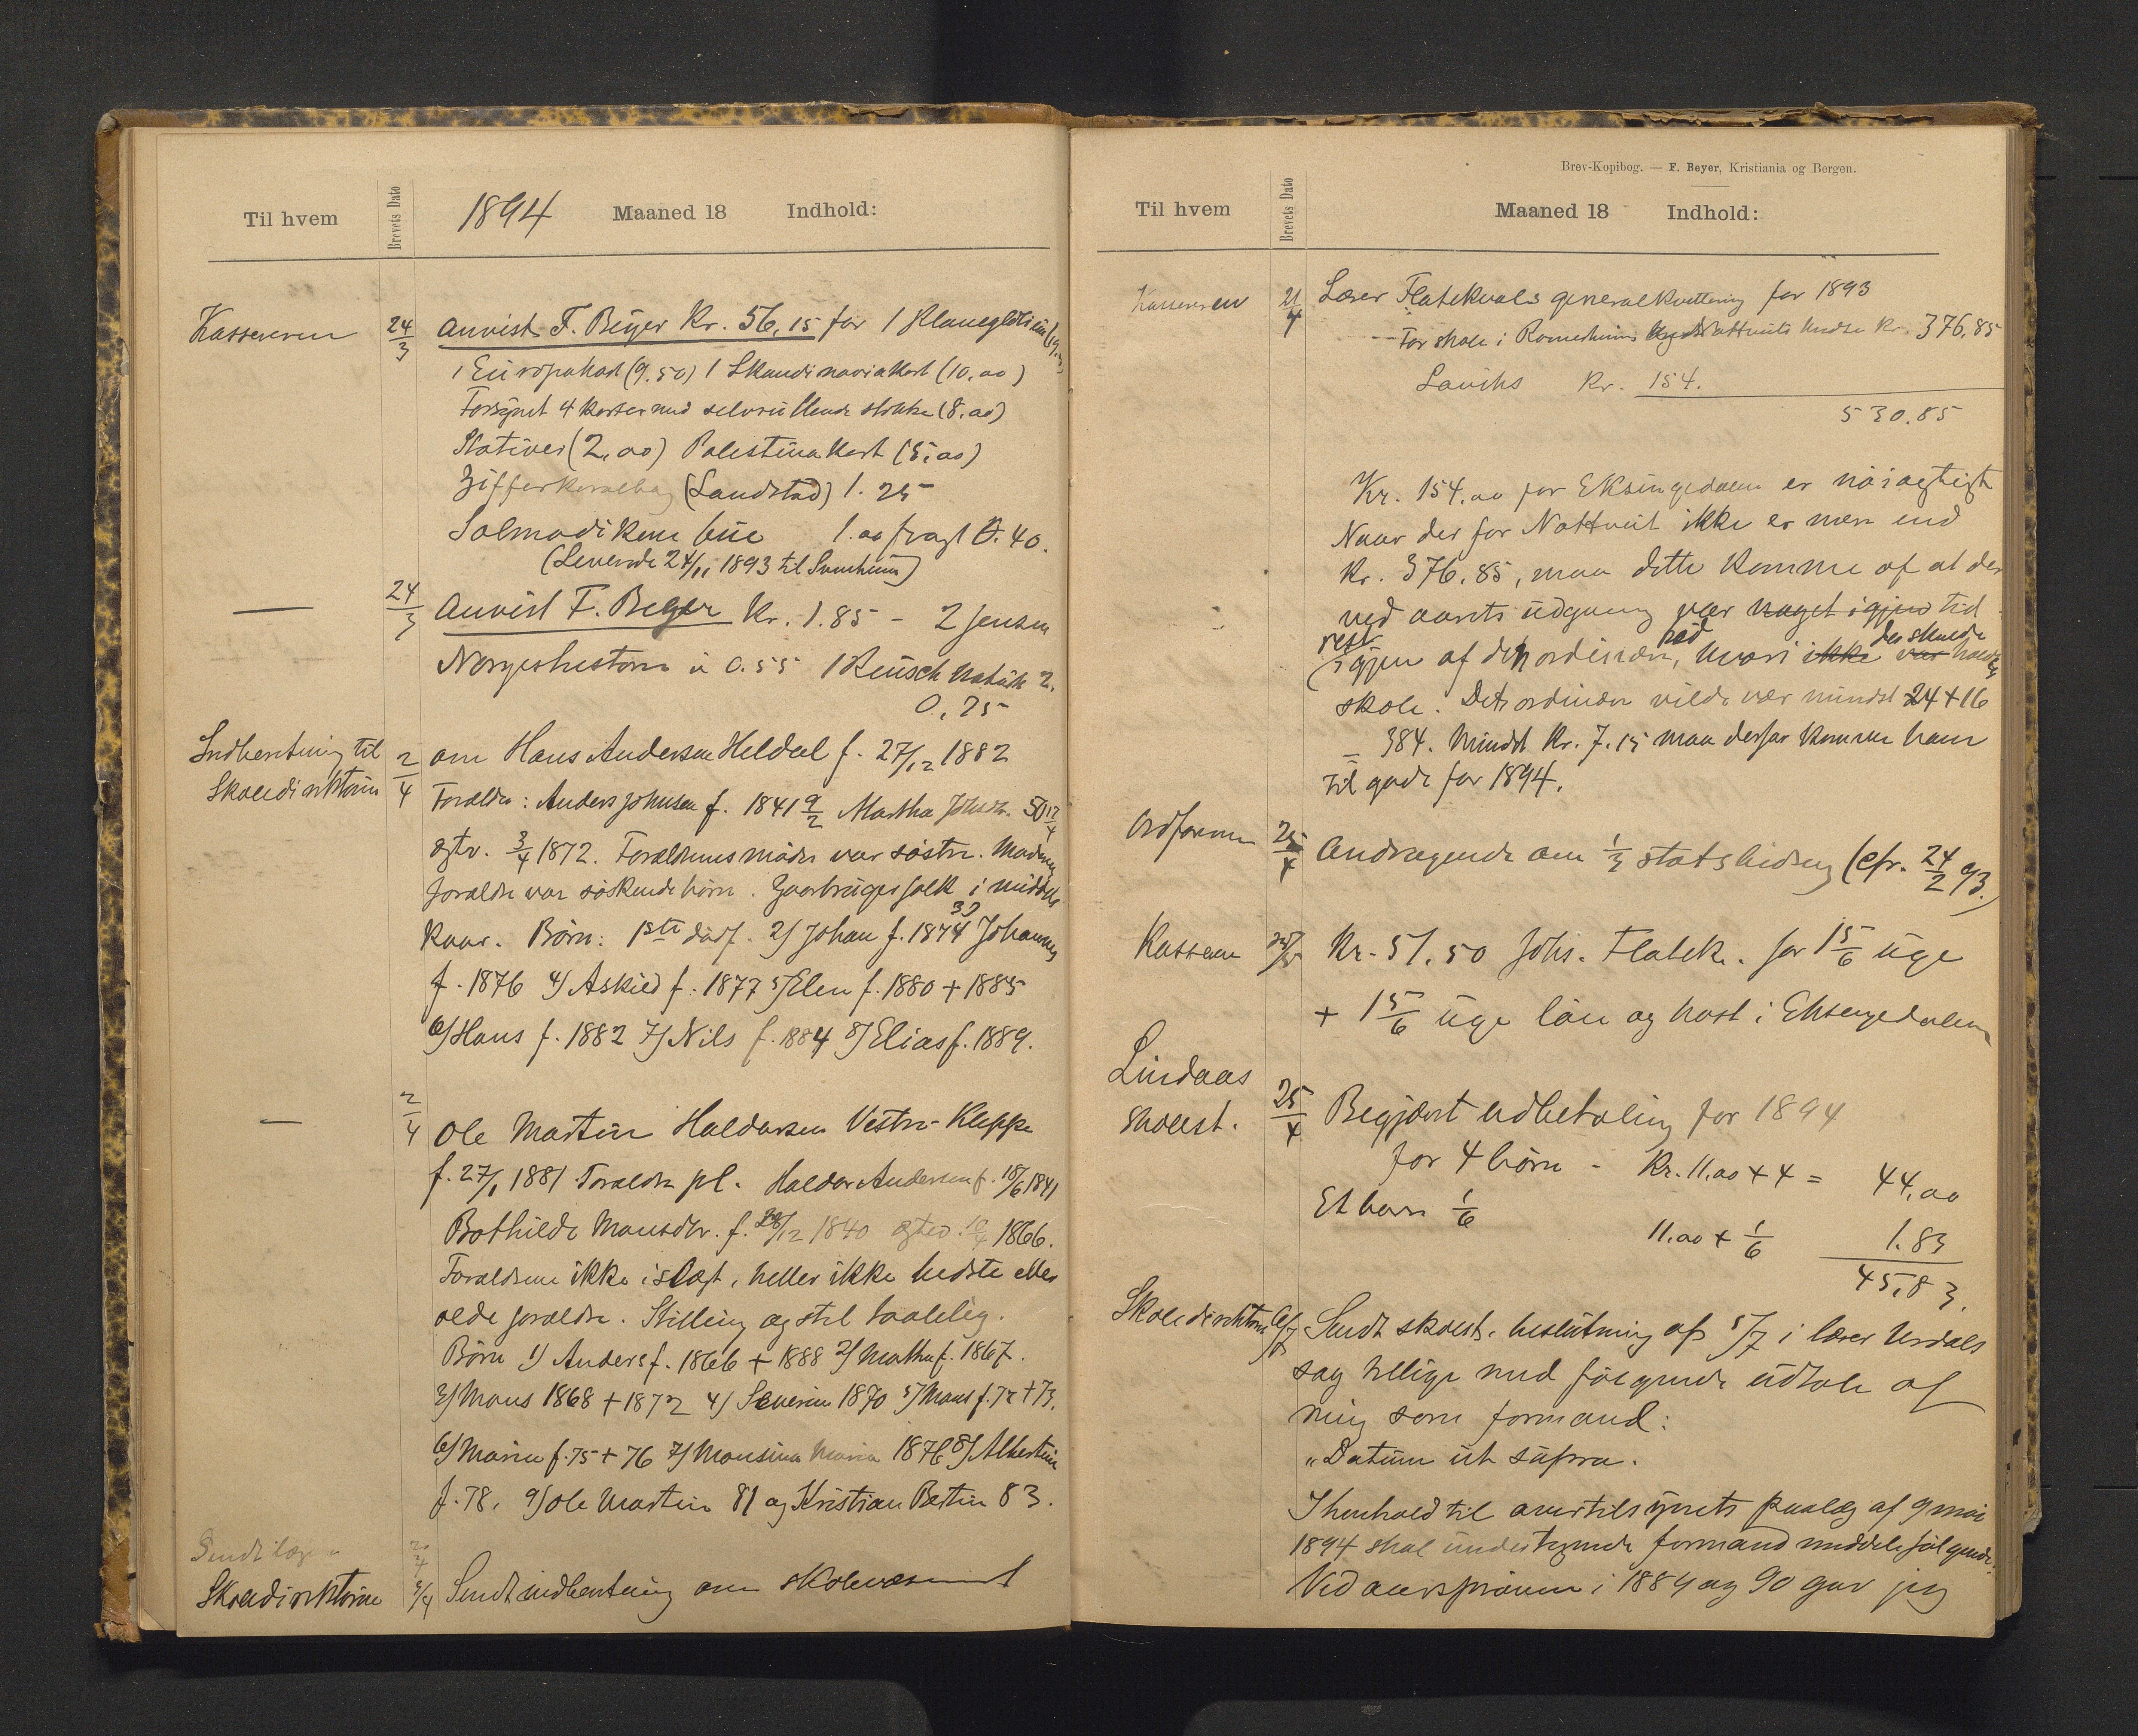 Til hvem
Brevets Dato
1894 Maaned 18 Indhold:
Kassereren 24/3 Anvist F. Beyer Kr. 56,15 for 1
1 Europakart (9.50) 1 Skandinaviakart (10,00)
4 karter med selvrullende stokke (8.00)
Stativer (2,00) Palestina kart (5,00)
Zifferkoralbog (Landstad) 1.25
Salmodikon bue 1.00 fragt 0.40.
(Leverede 24/11 1893 til )
— 24/3 Anvist F. Beyer Kr. 1.85 - 2 Jensen
Norgeshistorie à 0.55 1 Reusch 2.
0,75
Indberetning til
Skoledirektøren
2/4 om Hans Andersen Heldal f. 27/12 1882
Forældre: Anders Johnsen f. 1841 9/2 Martha Johsdr. 50 12/4
egtv. 3/4 1872. Forældrenes mødre var søstre. Moderens
forældre var søskendebørn. Gaarbrugerfolk i middels
kaar. Børn: 1ste dødf. 2) Johan f. 1874 3) Johannes
f. 1876 4) Askild f. 1877 5) Elen f. 1880 + 1885
6) Hans f. 1882 7) Nils f. 1884 8) Elias f. 1889.
— 2/4 Ole Martin Haldorsen Vestre-Kleppe
f. 27/1 1881 Forældre pl. Haldor Andersen f. 18/6 1841
Bothilde Monsdtr. f. 28/12 1840 egtev. 1866.
Forældrene ikke i slægt, heller ikke bedste eller
olde forældre. Stilling og stel taalelig.
Børn 1) Anders f. 1866 + 1888 2) Martha f. 1867.
3) Mons 1868 + 1872 4) Severin 1870 5) Mons f. 72 + 73.
6) Maria f. 75 + 76 7) Monsina Maria 1876 8) Albertine
f. 78. 9) Ole Martin 81 og Kristian Bertin 83.
Sendt
Skoledirektøren 5/4 Sendt indberetning om skolevæsenet
Brev-Kopibog. — F. Beyer, Kristiania og Bergen.
Til hvem
Brevets Dato
Maaned 18 Indhold:
Kassereren 21/4 Lærer Flatekvals generalkvittering for 1893
For skole i Romerheims kreds Kr. 376,85
Kr. 154.
530.85
Kr. 154.00 for Eksingedalen er nøiagtigt
Naar der for Nottveit ikke er mere end
Kr. 376.85, maa dette komme af at der
ved aarets udgang var noget igjen tid
rest der skulde
igjen af den ordinære, hvori ikke var holdes
skole. Det ordinære vilde vær mindst 24 + 16
= 384. Mindst Kr. 7.15 maa derfor komme ham
til gode for 1894.
Ordføreren 25/4 Andragende om 1/3 statsbidrag (cfr. 24/2 93.)
Kasseren Kr. 51.50 Johs. Flatek. for 1 5/6 uge
+ 1 5/6 uge løn og kost i Eksingedalen
Lindaas
skolest. 25/4 Begjært udbetaling for 1894
for 4 børn - Kr. 11,00 + 4 = 44,00
Et barn 1/6
11.00 + 1/6 1.83
45,83.
Skoledirektøren Sendt skolest. beslutning af 5/7 i lærer Urdals
sag tillige med følgende udtale af
mig som formand:
"Datum ut supra.
I henhold til overtilsynets paalæg af 9 mai
1894 skal undertegnede formand meddele følgende:
Ved aarsprøven i 1889 og 90 gav jeg